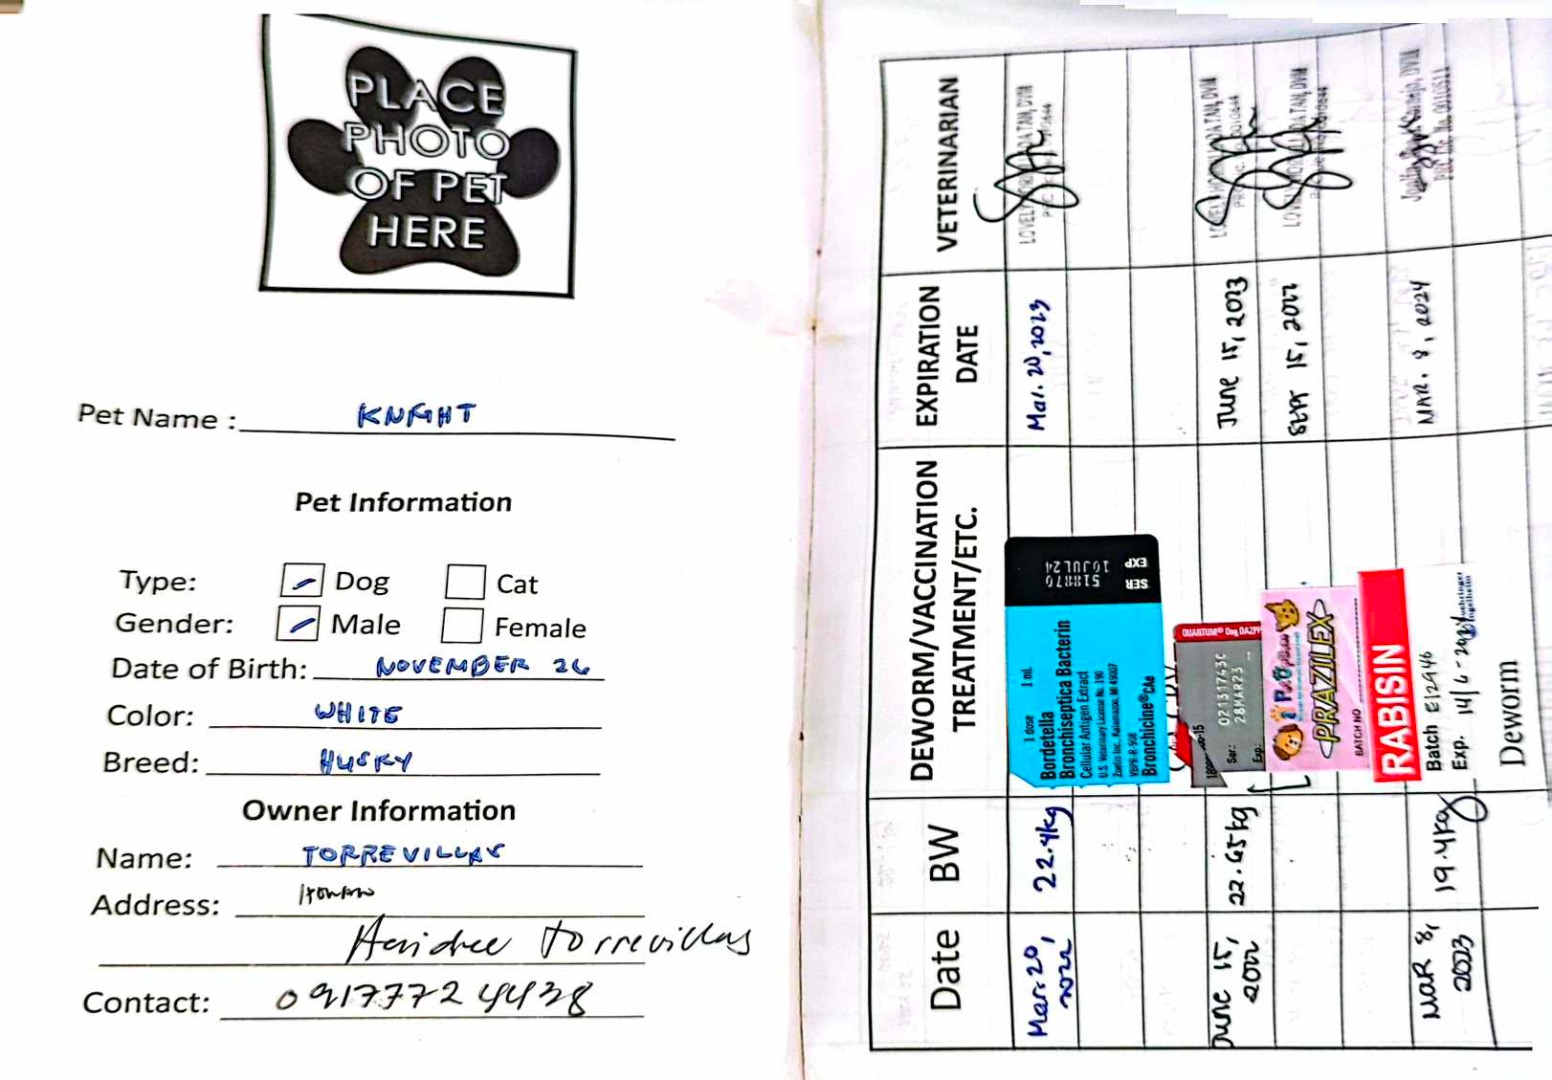 PLACE
PHOTO
OF PET
HERE
Pet Name : KNIGHT
Pet Information
Type: Dog Cat
Gender: Male Female
Date of Birth: NOVEMBER 26
Color: WHITE
Breed: HUSKY
Owner Information
Name: TORREVILLAS
Address:
torrevillas
Contact: 09177724438
Date BW DEWORM/VACCINATION TREATMENT/ETC. EXPIRATION DATE VETERINARIAN
Mar. 20, 2022 22.4kg
1 dose 1 mL
Bordetella
Bronchiseptica Bacterin
Cellular Antigen Extract
U.S. Veterinary License No. 190
Zoetis Inc. Kalamazoo, MI 49007
Bronchicine®CAe
SER 518870
EXP 10JUL24
Mar. 20, 2023
June 15, 2022 22.65kg
QUANTUM® Dog DA2PP
Ser: 02131743C
Exp: 28MAR23
June 15, 2023
PRAZILEX
BATCH NO
Sept 15, 2022
Mar 8, 2023 19.4kg
RABISIN
Batch E12946
Exp. 14/6-2024
Boehringer
Ingelheim
Mar. 8, 2024
Deworm